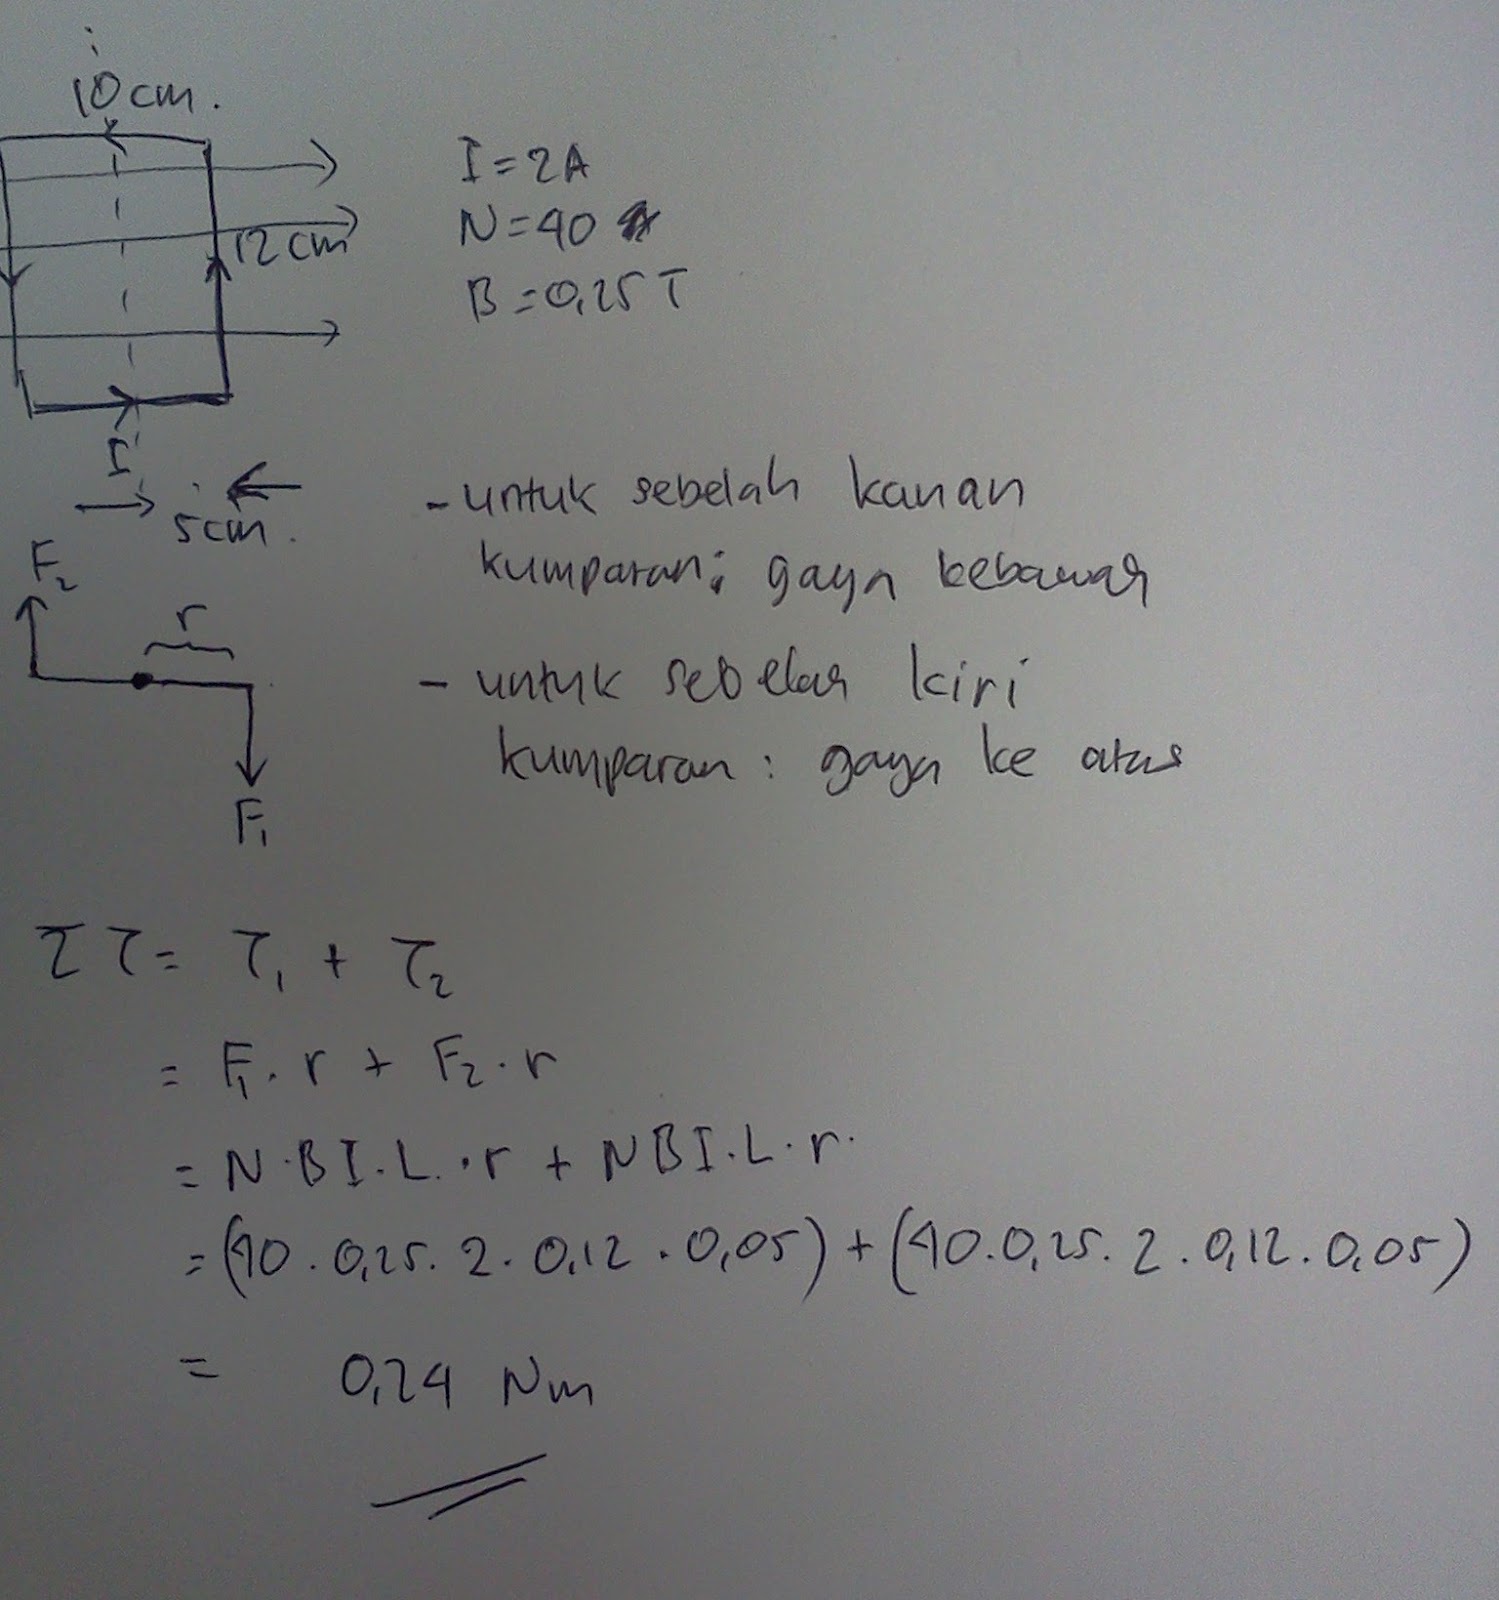 10 cm.
I = 2A
N = 40
B = 0,25 T
12 cm
I
5 cm.
- untuk sebelah kanan
kumparan: gaya kebawah
F₂
r
- untuk sebelah kiri
kumparan : gaya ke atas
F₁
Στ = τ₁ + τ₂
= F₁. r + F₂. r
= N.BI.L.r + NBI.L.r.
= (40 . 0,25. 2. 0,12 . 0,05) + (40.0,25. 2 . 0,12. 0,05)
= 0,24 Nm